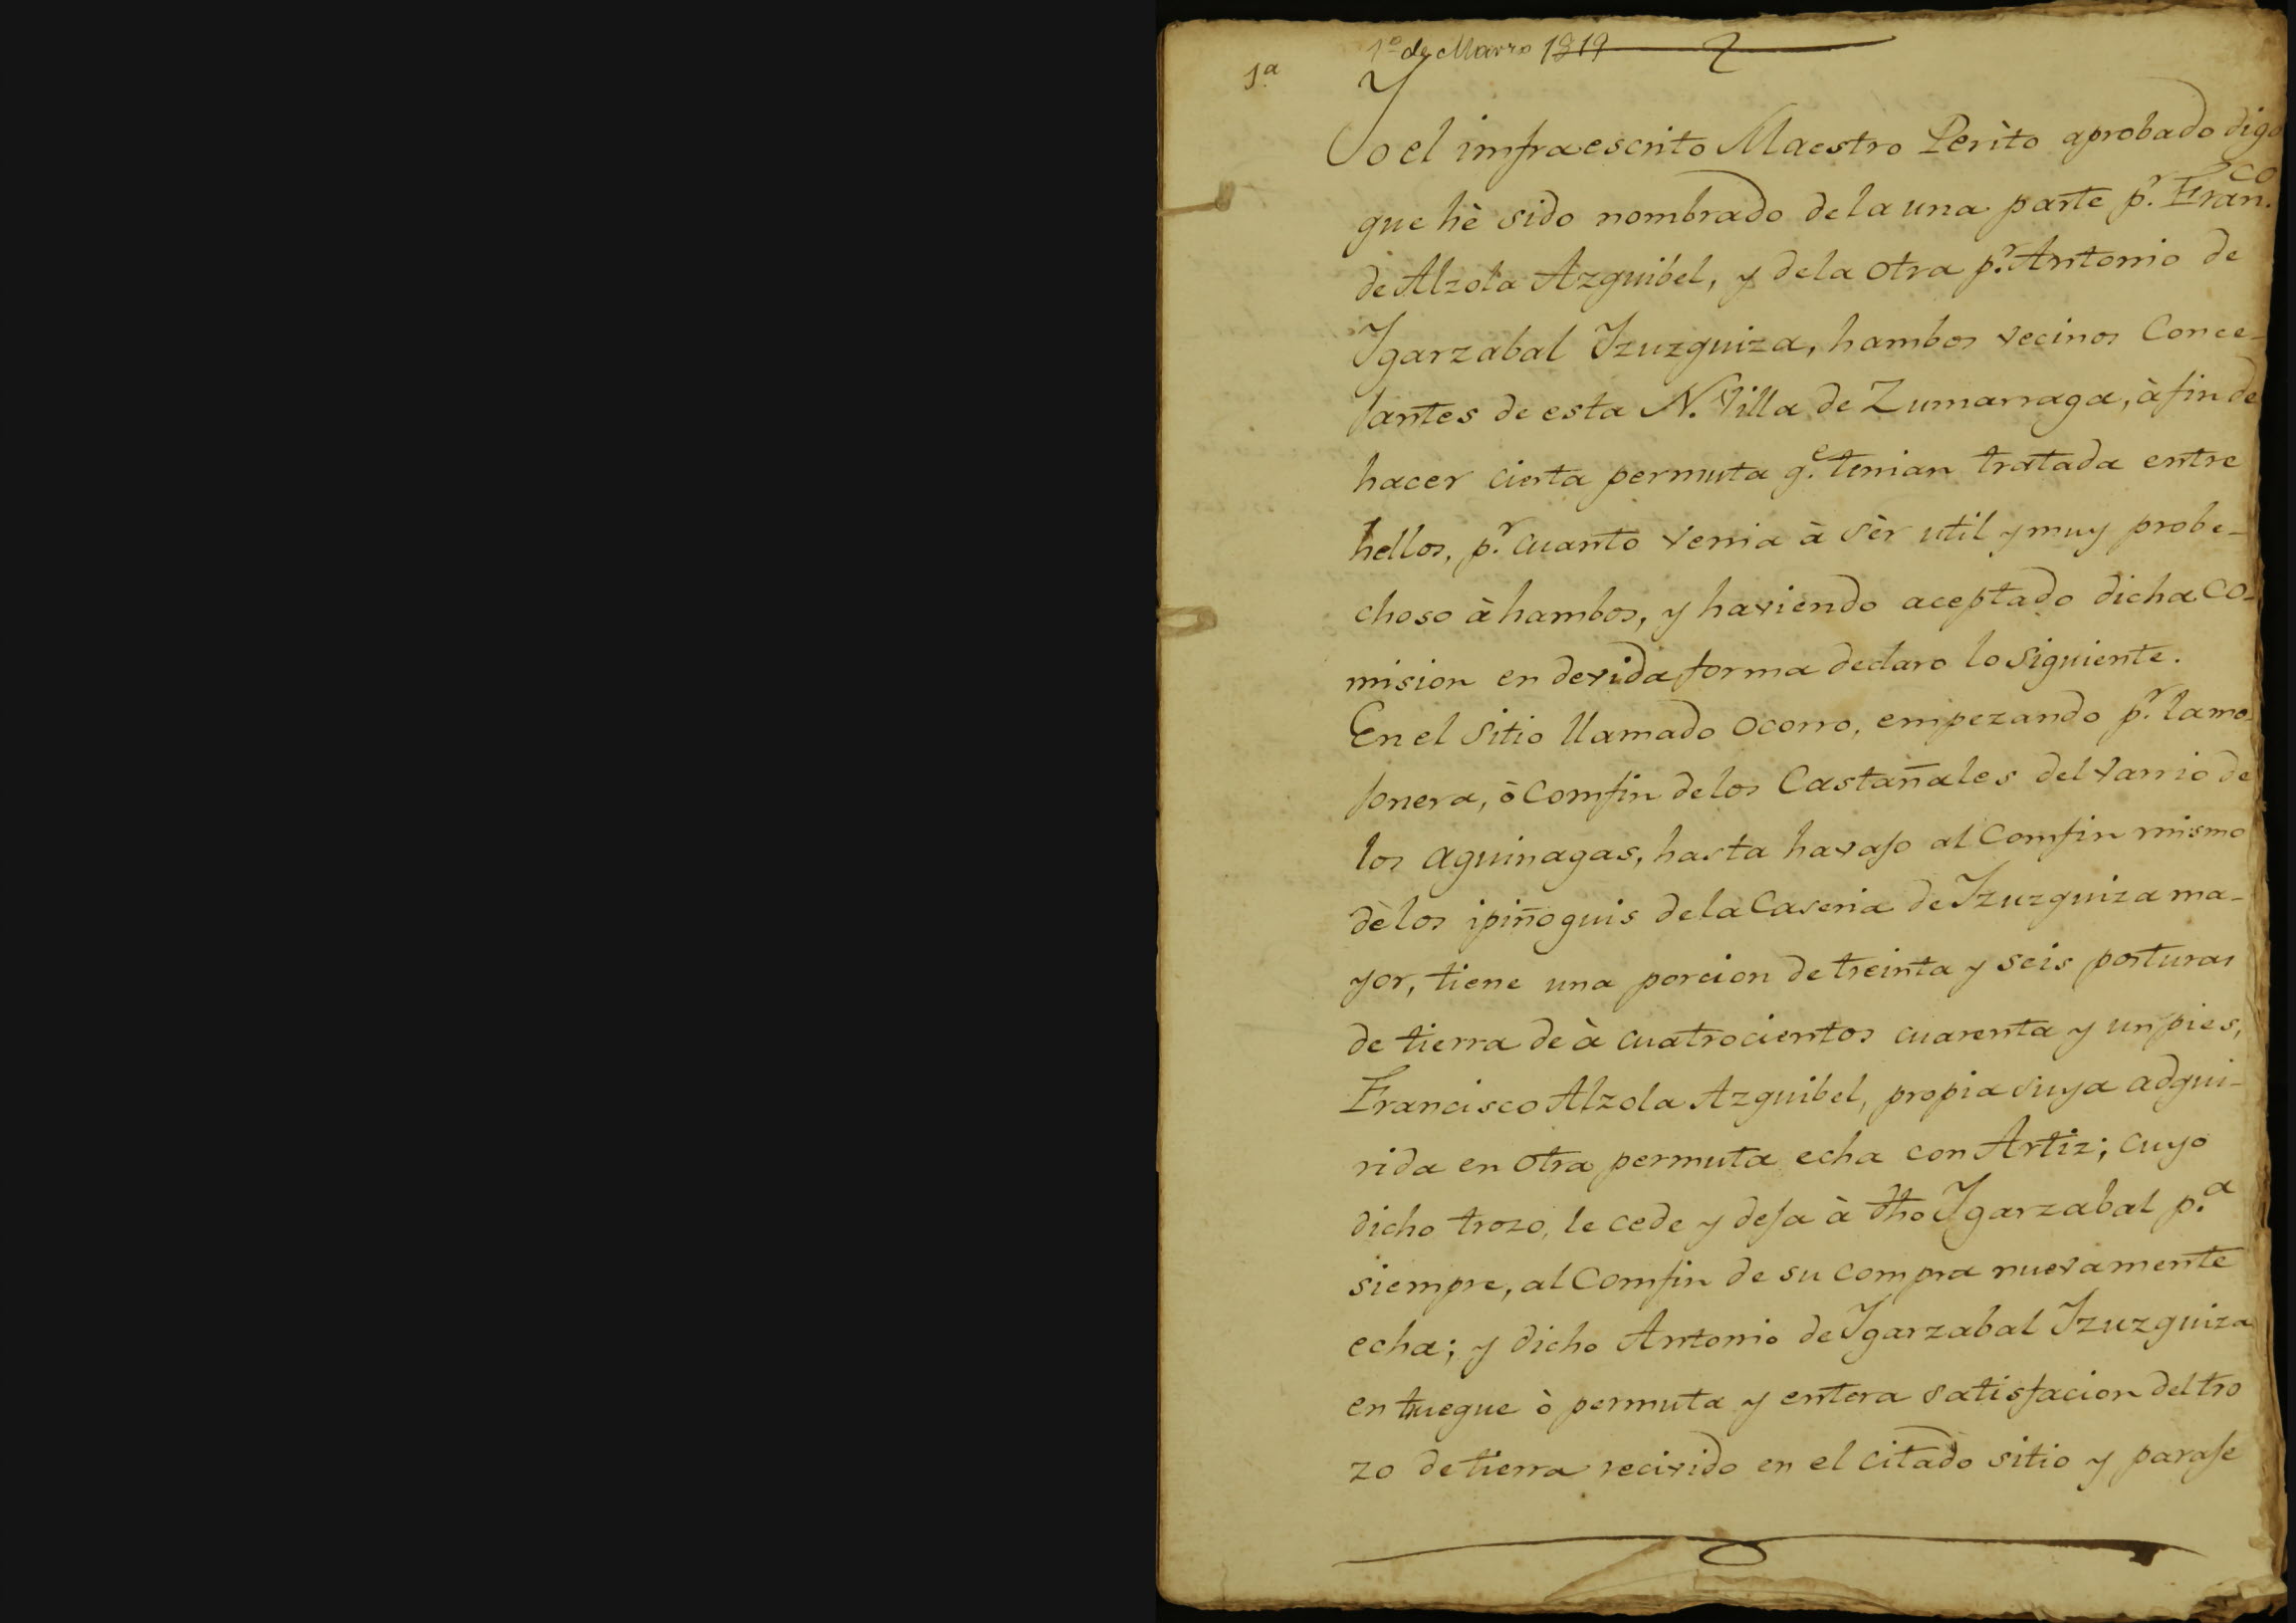 1º de Marzo 1819
1ª
Yo el imfraescrito Maestro Perìto aprobado digo
que hè sido nombrado de la una parte p.r Fran.co
de Alzola Azquibel, y de la otra p.r Antonio de
Igarzabal Izuzquiza, hambos vecinos Conce-
jantes de esta N. Villa de Zumarraga, à fin de
hacer cierta permuta q.e tenian tratada entre
hellos, p.r cuanto venia à sèr util y muy probe-
choso à hambos, y haviendo aceptado dicha co-
mision en devida forma declaro lo siguiente.
En el sitio llamado ocorro, empezando p.r la mo-
jonera, ò comfin de los Castañales del varrio de
los aguinagas, hasta havajo al Comfin mismo
dè los ipiñoguis de la Caseria de Izuzquiza ma-
yor, tiene una porcion de treinta y seis posturas
de tierra de à cuatrocientos cuarenta y un pies,
Francisco Alzola Azquibel, propia suya adqui-
rida en otra permuta echa con Artiz; cuyo
dicho trozo, le cede y deja à dho Igarzabal p.a
siempre, al Comfin de su compra nuevamente
echa; y dicho Antonio de Igarzabal Izuzquiza
en trueque ò permuta y entera satisfacion del tro
zo de tierra recivido en el citado sitio y paraje